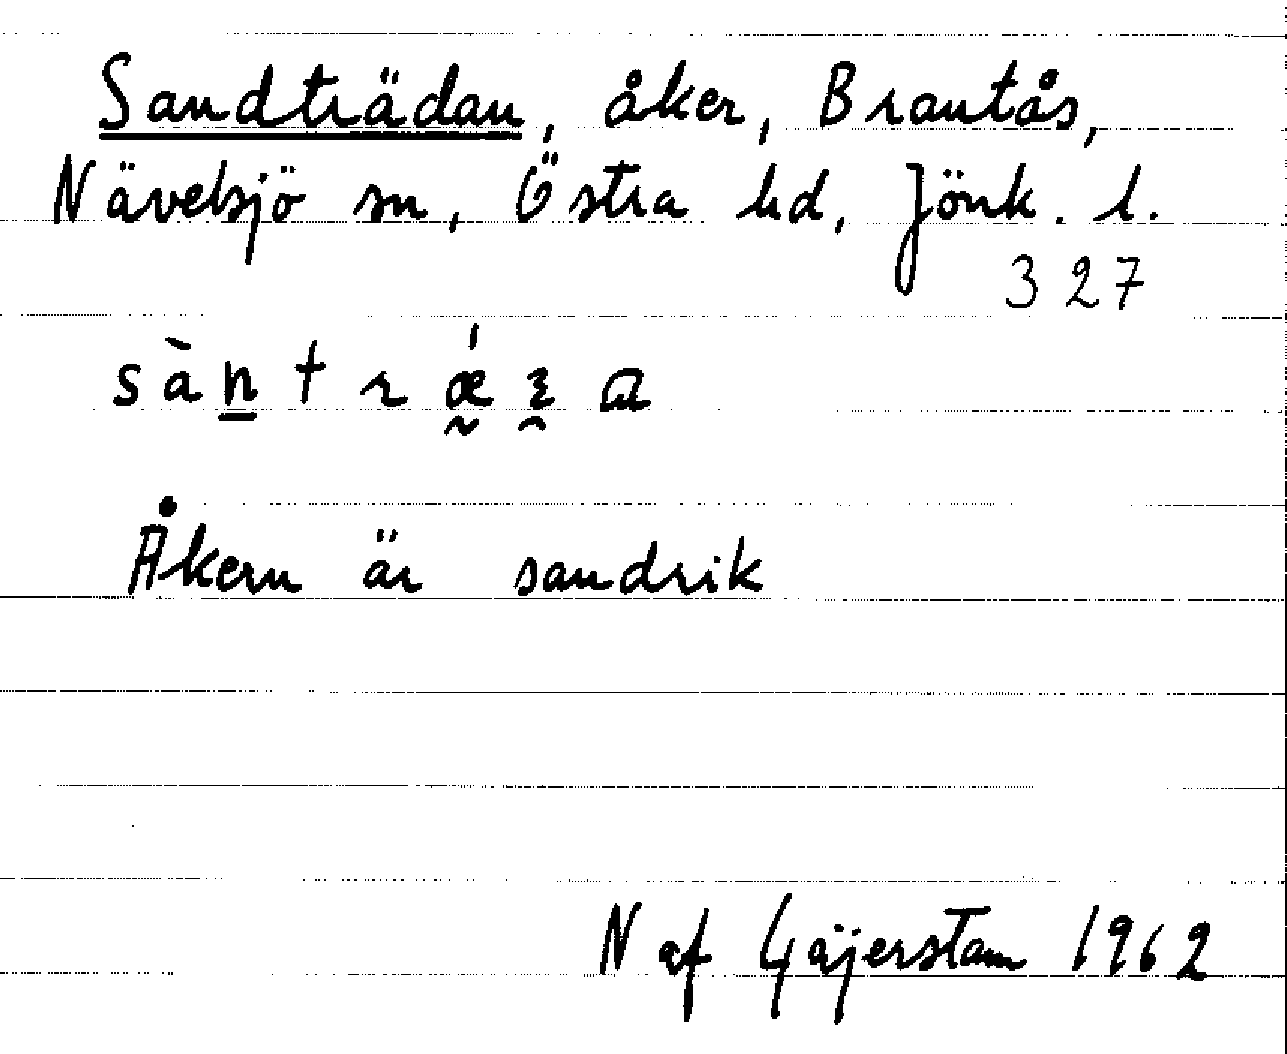 Sandträdan, åker, Brantås,
Nävelsjö sn, Östra hd, Jönk. l.
327
sàn̲trǽ̰ɜ̯ɑ
Åkern är sandrik
N af Gäjerstam 1962